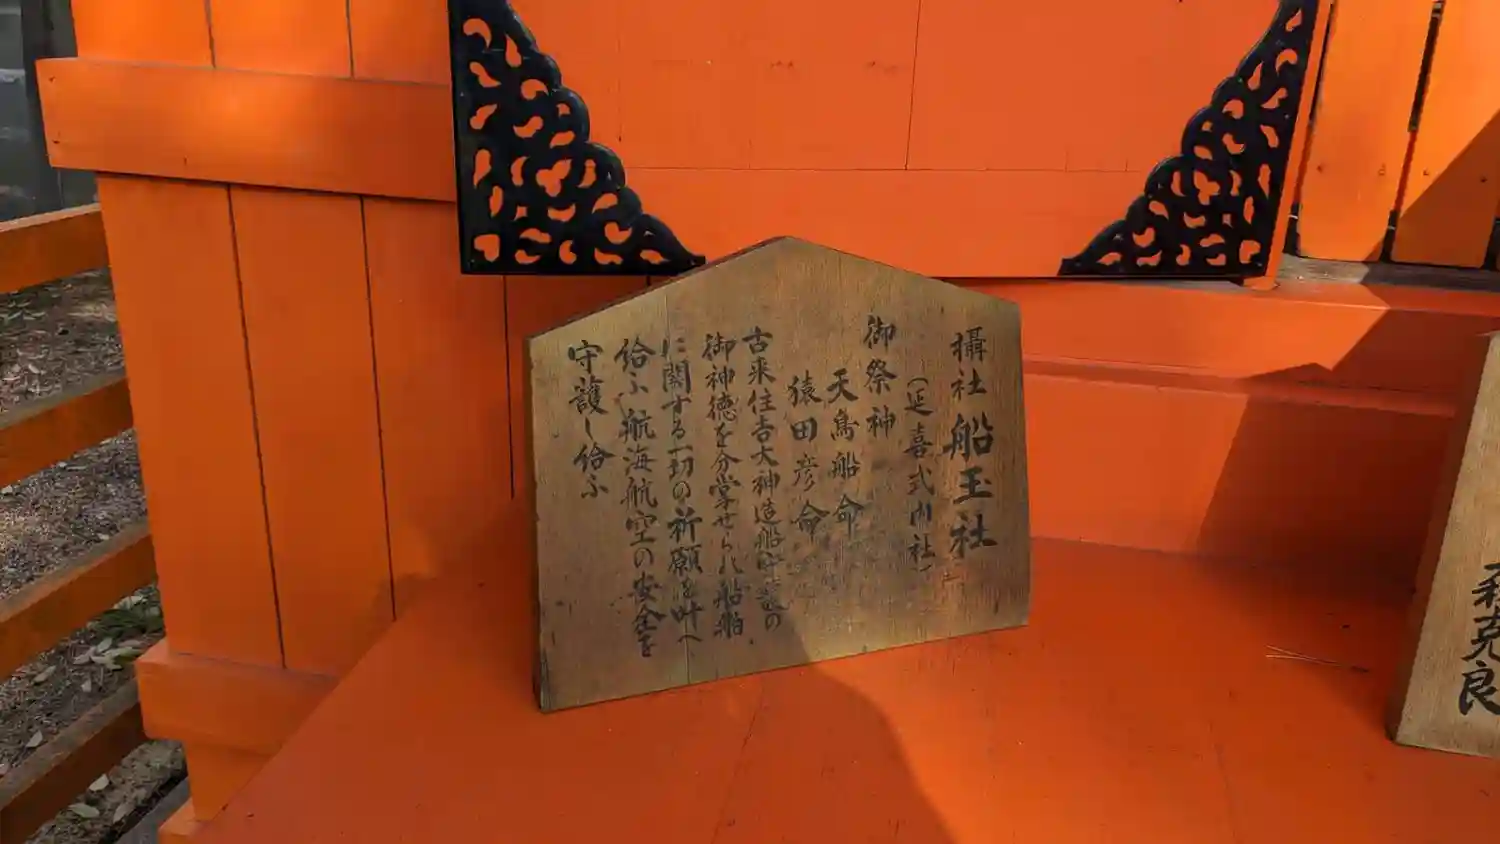 攝社 船玉社
（延喜式内社）
御祭神
天鳥船命
猿田彦命
古来住吉大神造船の
御神徳を分掌せられ船舶
に関する一切の祈願を叶へ
給ふ航海航空の安全を
守護し給ふ
森克良